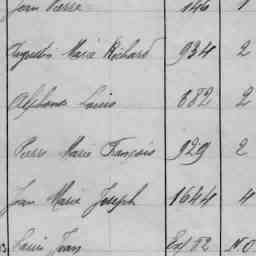 Jean Pierre 146 1
Augustin Marie Richard 934 2
Alphonse Louis 882 2
Pierre Marie François 929 2
Jean Marie Joseph 1644 4
Louis Jean